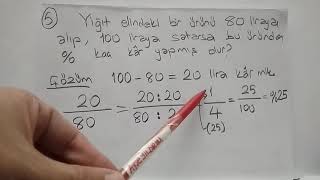 5 Yiğit elindeki bir ürünü 80 liraya
alıp, 100 liraya satarsa bu üründen
% kaç kâr yapmış olur?
Çözüm 100-80 = 20 lira kâr
20/80 = 20:20/80:2 1/4 = 25/100 = %25
(25)